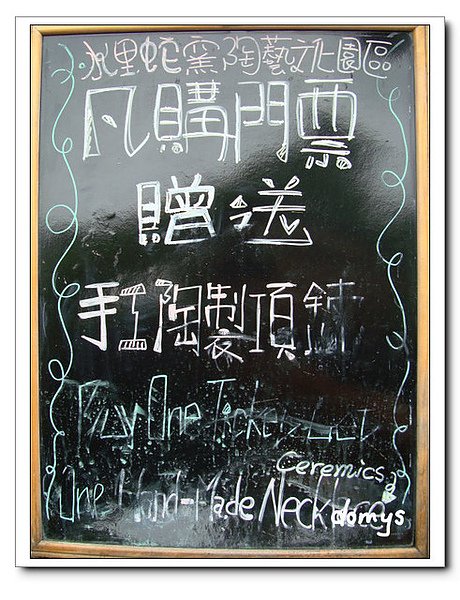 水里蛇窯陶藝文化園區
凡購門票
贈送
手工陶製項鍊
Buy One Ticket Get
One Hand-Made Neck
Ceremics
domys